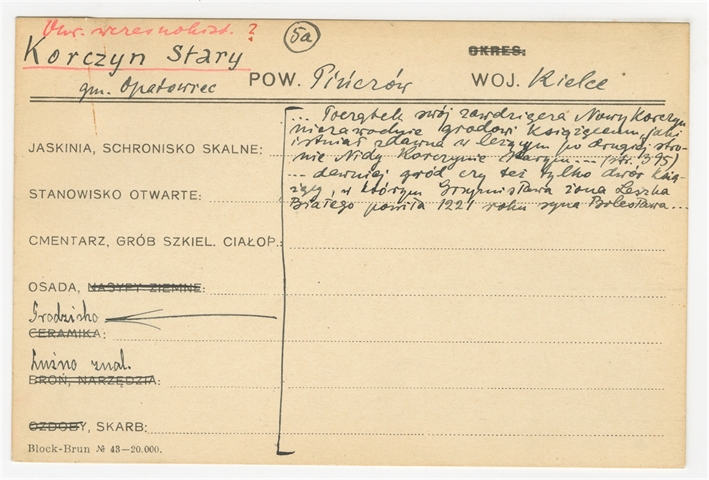 Okr. wczesnohist. ?
5a
OKRES:
Korczyn Stary
gm. Opatowiec
POW. Pińczów
WOJ. Kielce
... Początek swój zawdzięcza Nowy Korczyn
niezawodnie grodowi książęcemu, jaki
istniał zdawna w leżącym po drugiej stro-
nie Nidy Korczynie Starym --- (str. 395)
... dawniej gród czy też tylko dwór ksią-
żęcy, w którym Grzymisława żona Leszka
Białego powiła 1221 roku syna Bolesława...
JASKINIA, SCHRONISKO SKALNE:
STANOWISKO OTWARTE:
CMENTARZ, GRÓB SZKIEL. CIAŁOP.:
OSADA, NASYPY ZIEMNE:
Grodzisko
CERAMIKA:
Luźno znal.
BROŃ, NARZĘDZIA:
OZDOBY, SKARB:
Block-Brun № 43-20.000.